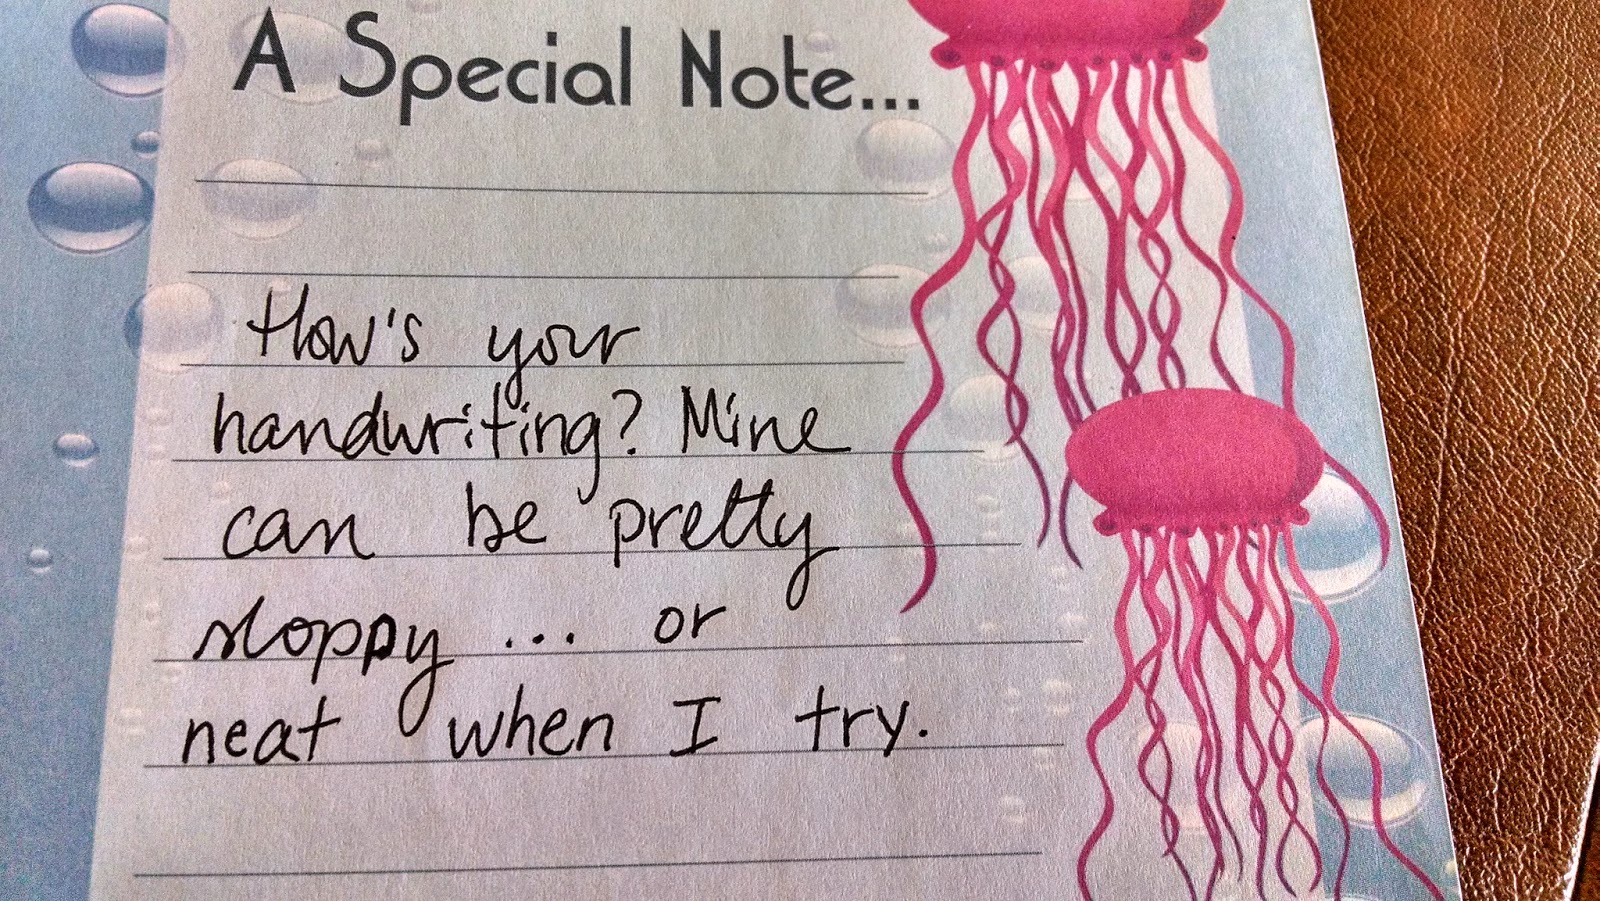 A Special Note...
How's your
handwriting? Mine
can be pretty
sloppy ... or
neat when I try.